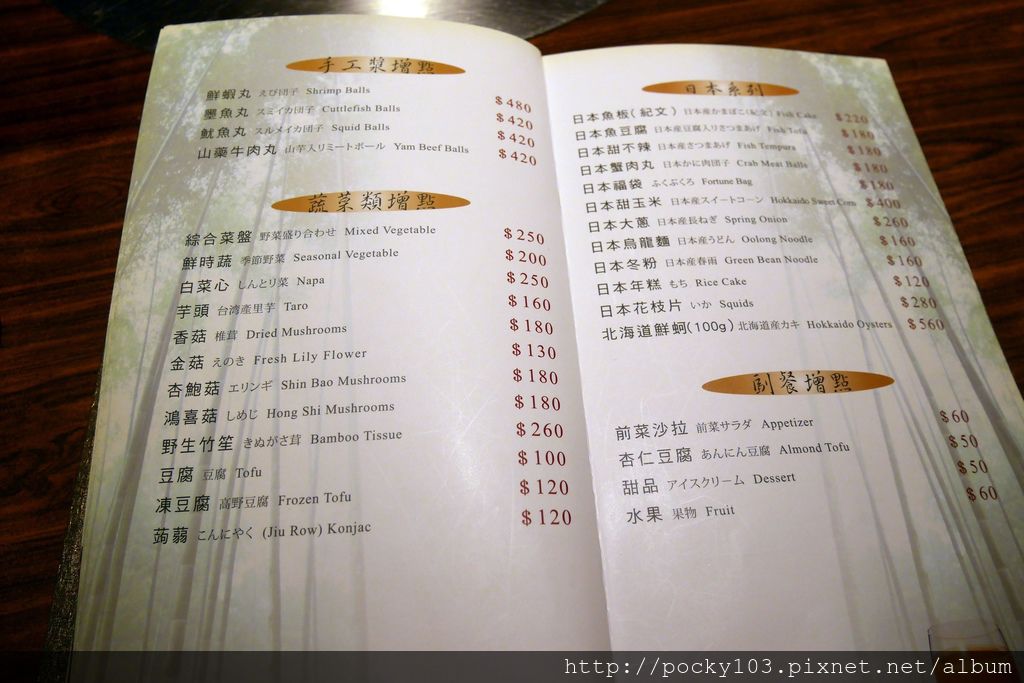 手工漿增點
鮮蝦丸 えび団子 Shrimp Balls $480
墨魚丸 スミイカ団子 Cuttlefish Balls $420
魷魚丸 スルメイカ団子 Squid Balls $420
山藥牛肉丸 山芋入リミートボール Yam Beef Balls $420
蔬菜類增點
綜合菜盤 野菜盛り合わせ Mixed Vegetable $250
鮮時蔬 季節野菜 Seasonal Vegetable $200
白菜心 しんとり菜 Napa $250
芋頭 台湾產里芋 Taro $160
香菇 椎茸 Dried Mushrooms $180
金菇 えのき Fresh Lily Flower $130
杏鮑菇 エリンギ Shin Bao Mushrooms $180
鴻喜菇 しめじ Hong Shi Mushrooms $180
野生竹笙 きぬがさ茸 Bamboo Tissue $260
豆腐 豆腐 Tofu $100
凍豆腐 高野豆腐 Frozen Tofu $120
蒟蒻 こんにやく (Jiu Row) Konjac $120
日本系列
日本魚板(紀文) 日本産かまぼこ(紀文) Fish Cake $220
日本魚豆腐 日本産豆腐入りさつまあげ Fish Tofu $180
日本甜不辣 日本産さつまあげ Fish Tempura $180
日本蟹肉丸 日本かに肉団子 Crab Meat Balls $180
日本福袋 ふくぶくろ Fortune Bag $180
日本甜玉米 日本産スイートコーン Hokkaido Sweet Corn $400
日本大蔥 日本産長ねぎ Spring Onion $260
日本烏龍麵 日本産うどん Oolong Noodle $160
日本冬粉 日本産春雨 Green Bean Noodle $160
日本年糕 もち Rice Cake $120
日本花枝片 いか Squids $280
北海道鮮蚵(100g) 北海道産カキ Hokkaido Oysters $560
副餐增點
前菜沙拉 前菜サラダ Appetizer $60
杏仁豆腐 あんにん豆腐 Almond Tofu $50
甜品 アイスクリーム Dessert $50
水果 果物 Fruit $60
http://pocky103.pixnet.net/album